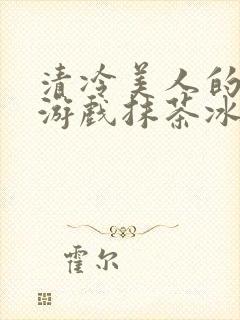 清冷美人的
游戏抹茶冰
霍尔